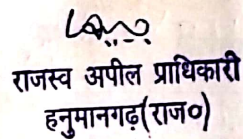 राजस्व अपील प्राधिकारी
हनुमानगढ़(राज०)